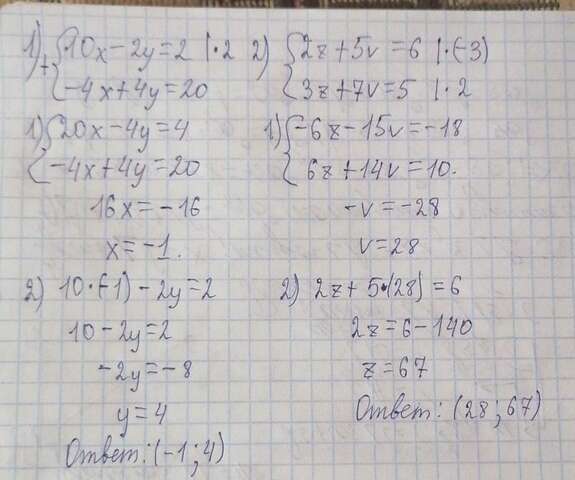 1) + { 10x-2y=2 |·2
-4x+4y=20
1) { 20x-4y=4
-4x+4y=20
16x=-16
x=-1.
2) 10·(-1)-2y=2
10-2y=2
-2y=-8
y=4
Ответ: (-1; 4)
2) { 2z+5v=6 |·(-3)
3z+7v=5 |·2
1) { -6z-15v=-18
6z+14v=10.
-v=-28
v=28
2) 2z+5·(28)=6
2z=6-140
z=67
Ответ: (28; 67)